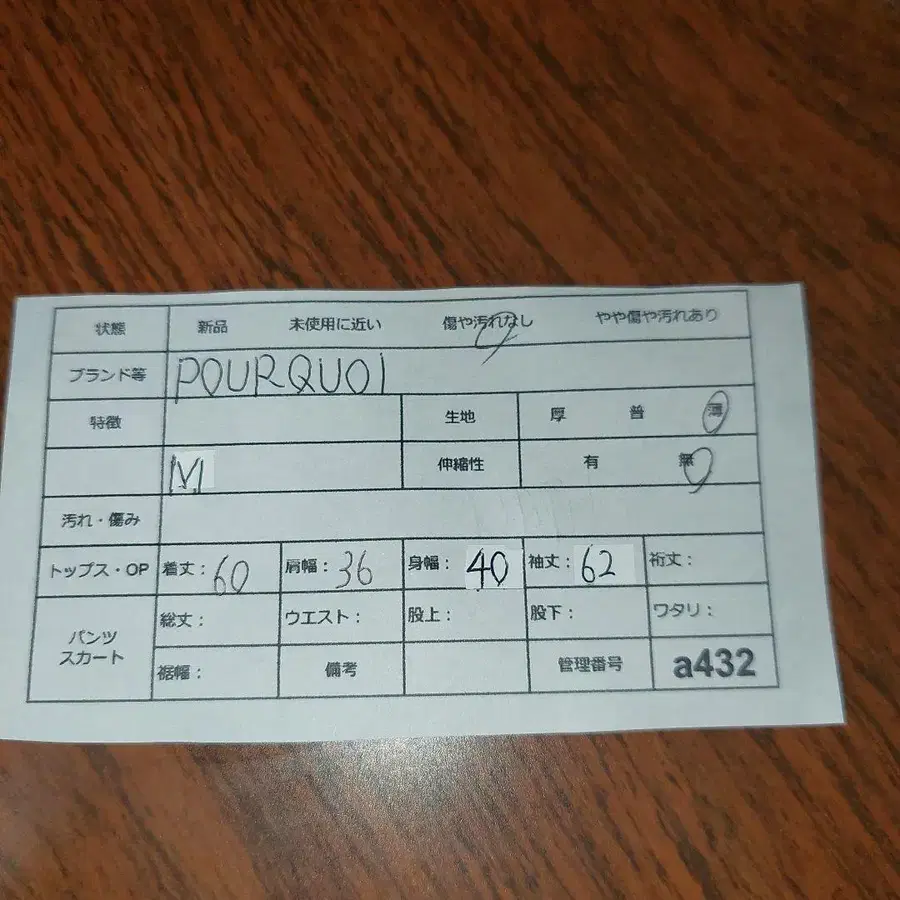 状態 新品 未使用に近い 傷や汚れなし やや傷や汚れあり
ブランド等 POURQUOI
特徴 生地 厚 普 薄
M 伸縮性 有 無
汚れ・傷み
トップス・OP 着丈：60 肩幅：36 身幅：40 袖丈：62 裄丈：
パンツ スカート 総丈： ウエスト： 股上： 股下： ワタリ：
裾幅： 備考 管理番号 a432